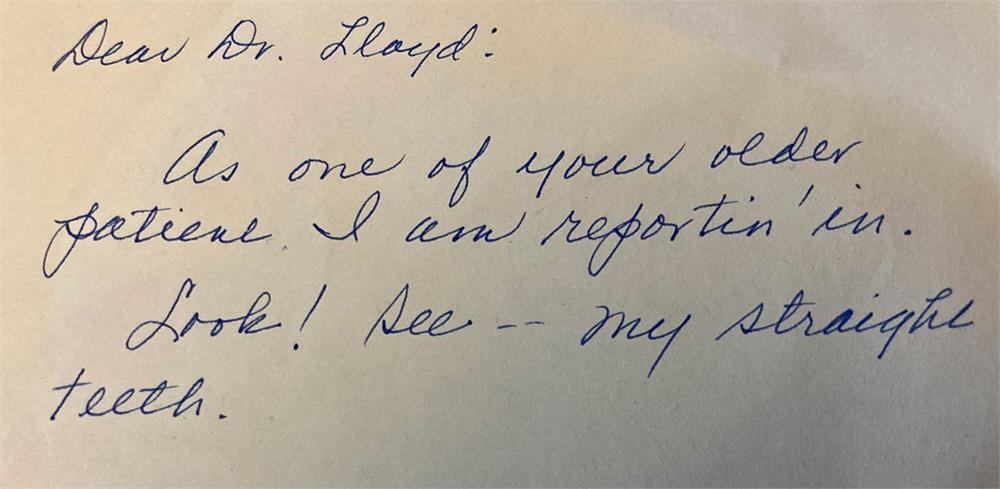 Dear Dr. Lloyd:
As one of your older
patient I am reportin' in.
Look! See -- my straight
teeth.